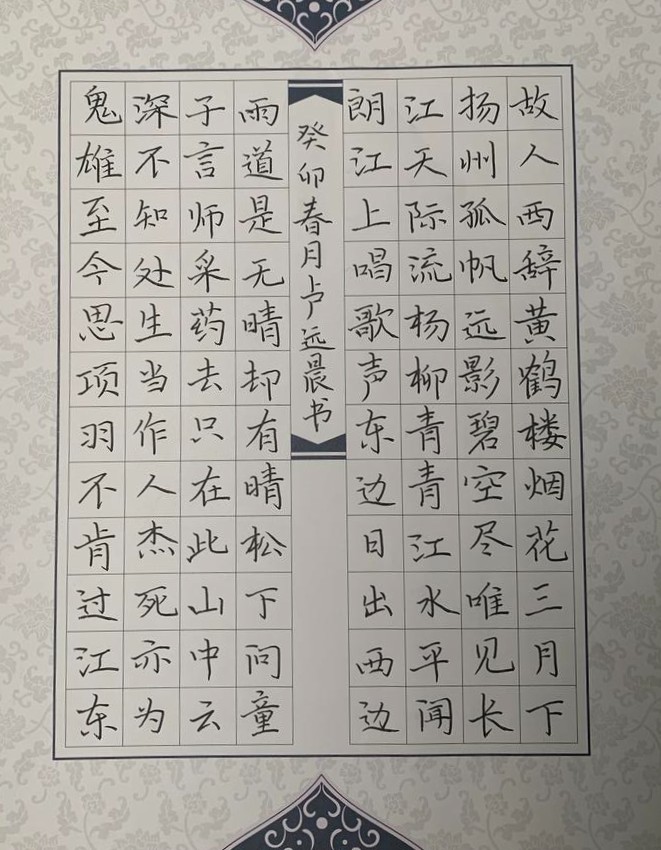 故人西辞黄鹤楼烟花三月下
扬州孤帆远影碧空尽唯见长
江天际流杨柳青青江水平闻
朗江上唱歌声东边日出西边
癸卯春月卢远晨书
雨道是无晴却有晴松下问童
子言师采药去只在此山中云
深不知处生当作人杰死亦为
鬼雄至今思项羽不肯过江东